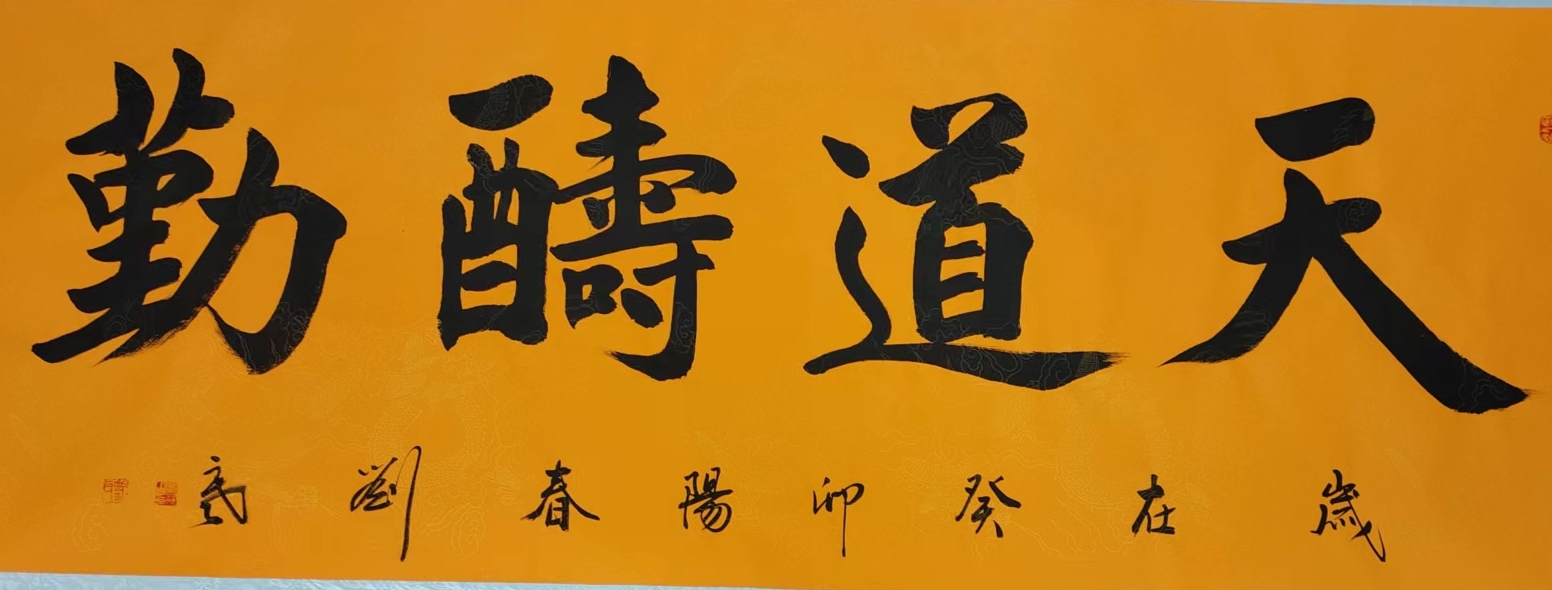 天道醻勤
歲在癸卯陽春劉